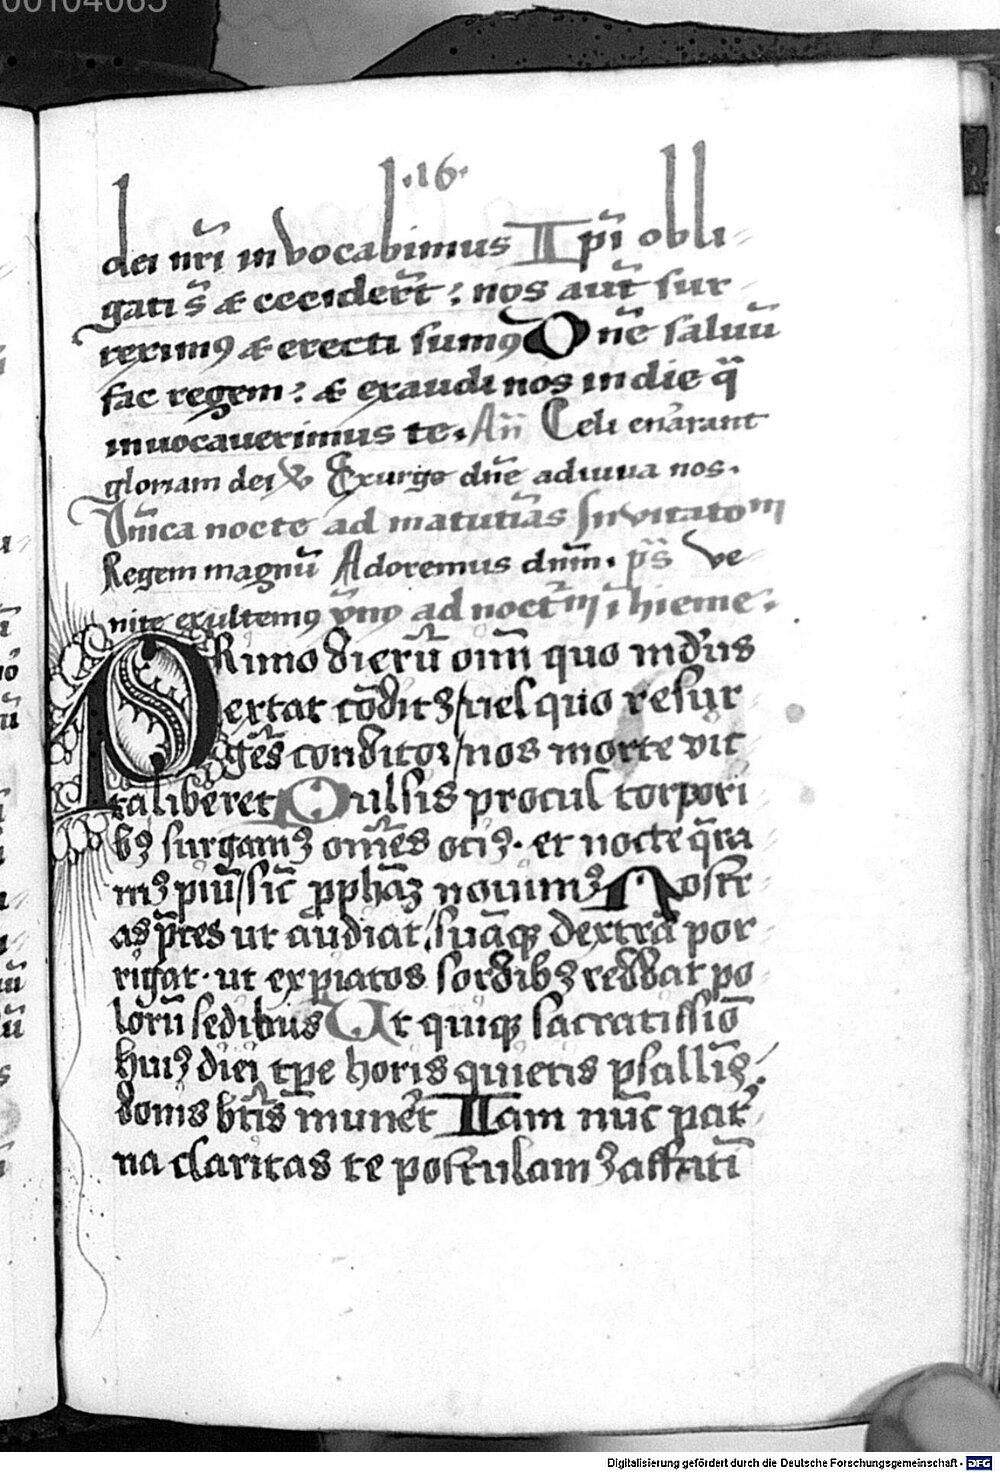 00104065
·16·
dei nr̄i in vocabimus Ipī obli
gati s̄ & cecidert̄ : nos aut̄ sur
rexim9 & erecti sum9 Dn̄e saluū
fac regem : & exaudi nos in die q̄
inuocauerimus te. An̄ Celi enarant
gloriam dei V Exurge dn̄e adiuua nos.
Dn̄ica nocte ad matutiās Inuitatom
Regem magnū Adoremus dnm̄. ps̄ Ve
nite exultem9 ymn9 ad noctm̄ ī hieme.
PRimo dierū oīm̄ quo mūd9s
extat cōditꝫ / uel quo resur
gēs conditor / nos morte vic
ta liberet Pulsis procul torpori
bꝫ surgamꝫ om̄es ociꝫ · et nocte q̄ra
mꝫ piū / sic̄ pphāꝫ nouimꝫ Nostr
as p̄ces ut audiat / suāqꝫ dextrā por
rigat · ut expiatos sordibꝫ reddat po
lorū sedibus Ut quiqꝫ sacratissīo
huiꝫ diei tp̄e horis quietis psallim̄ꝫ
donis btīs munet̄ Iam nūc pat̄
na claritas te postulamꝫ affatī
Digitalisierung gefördert durch die Deutsche Forschungsgemeinschaft - DFG